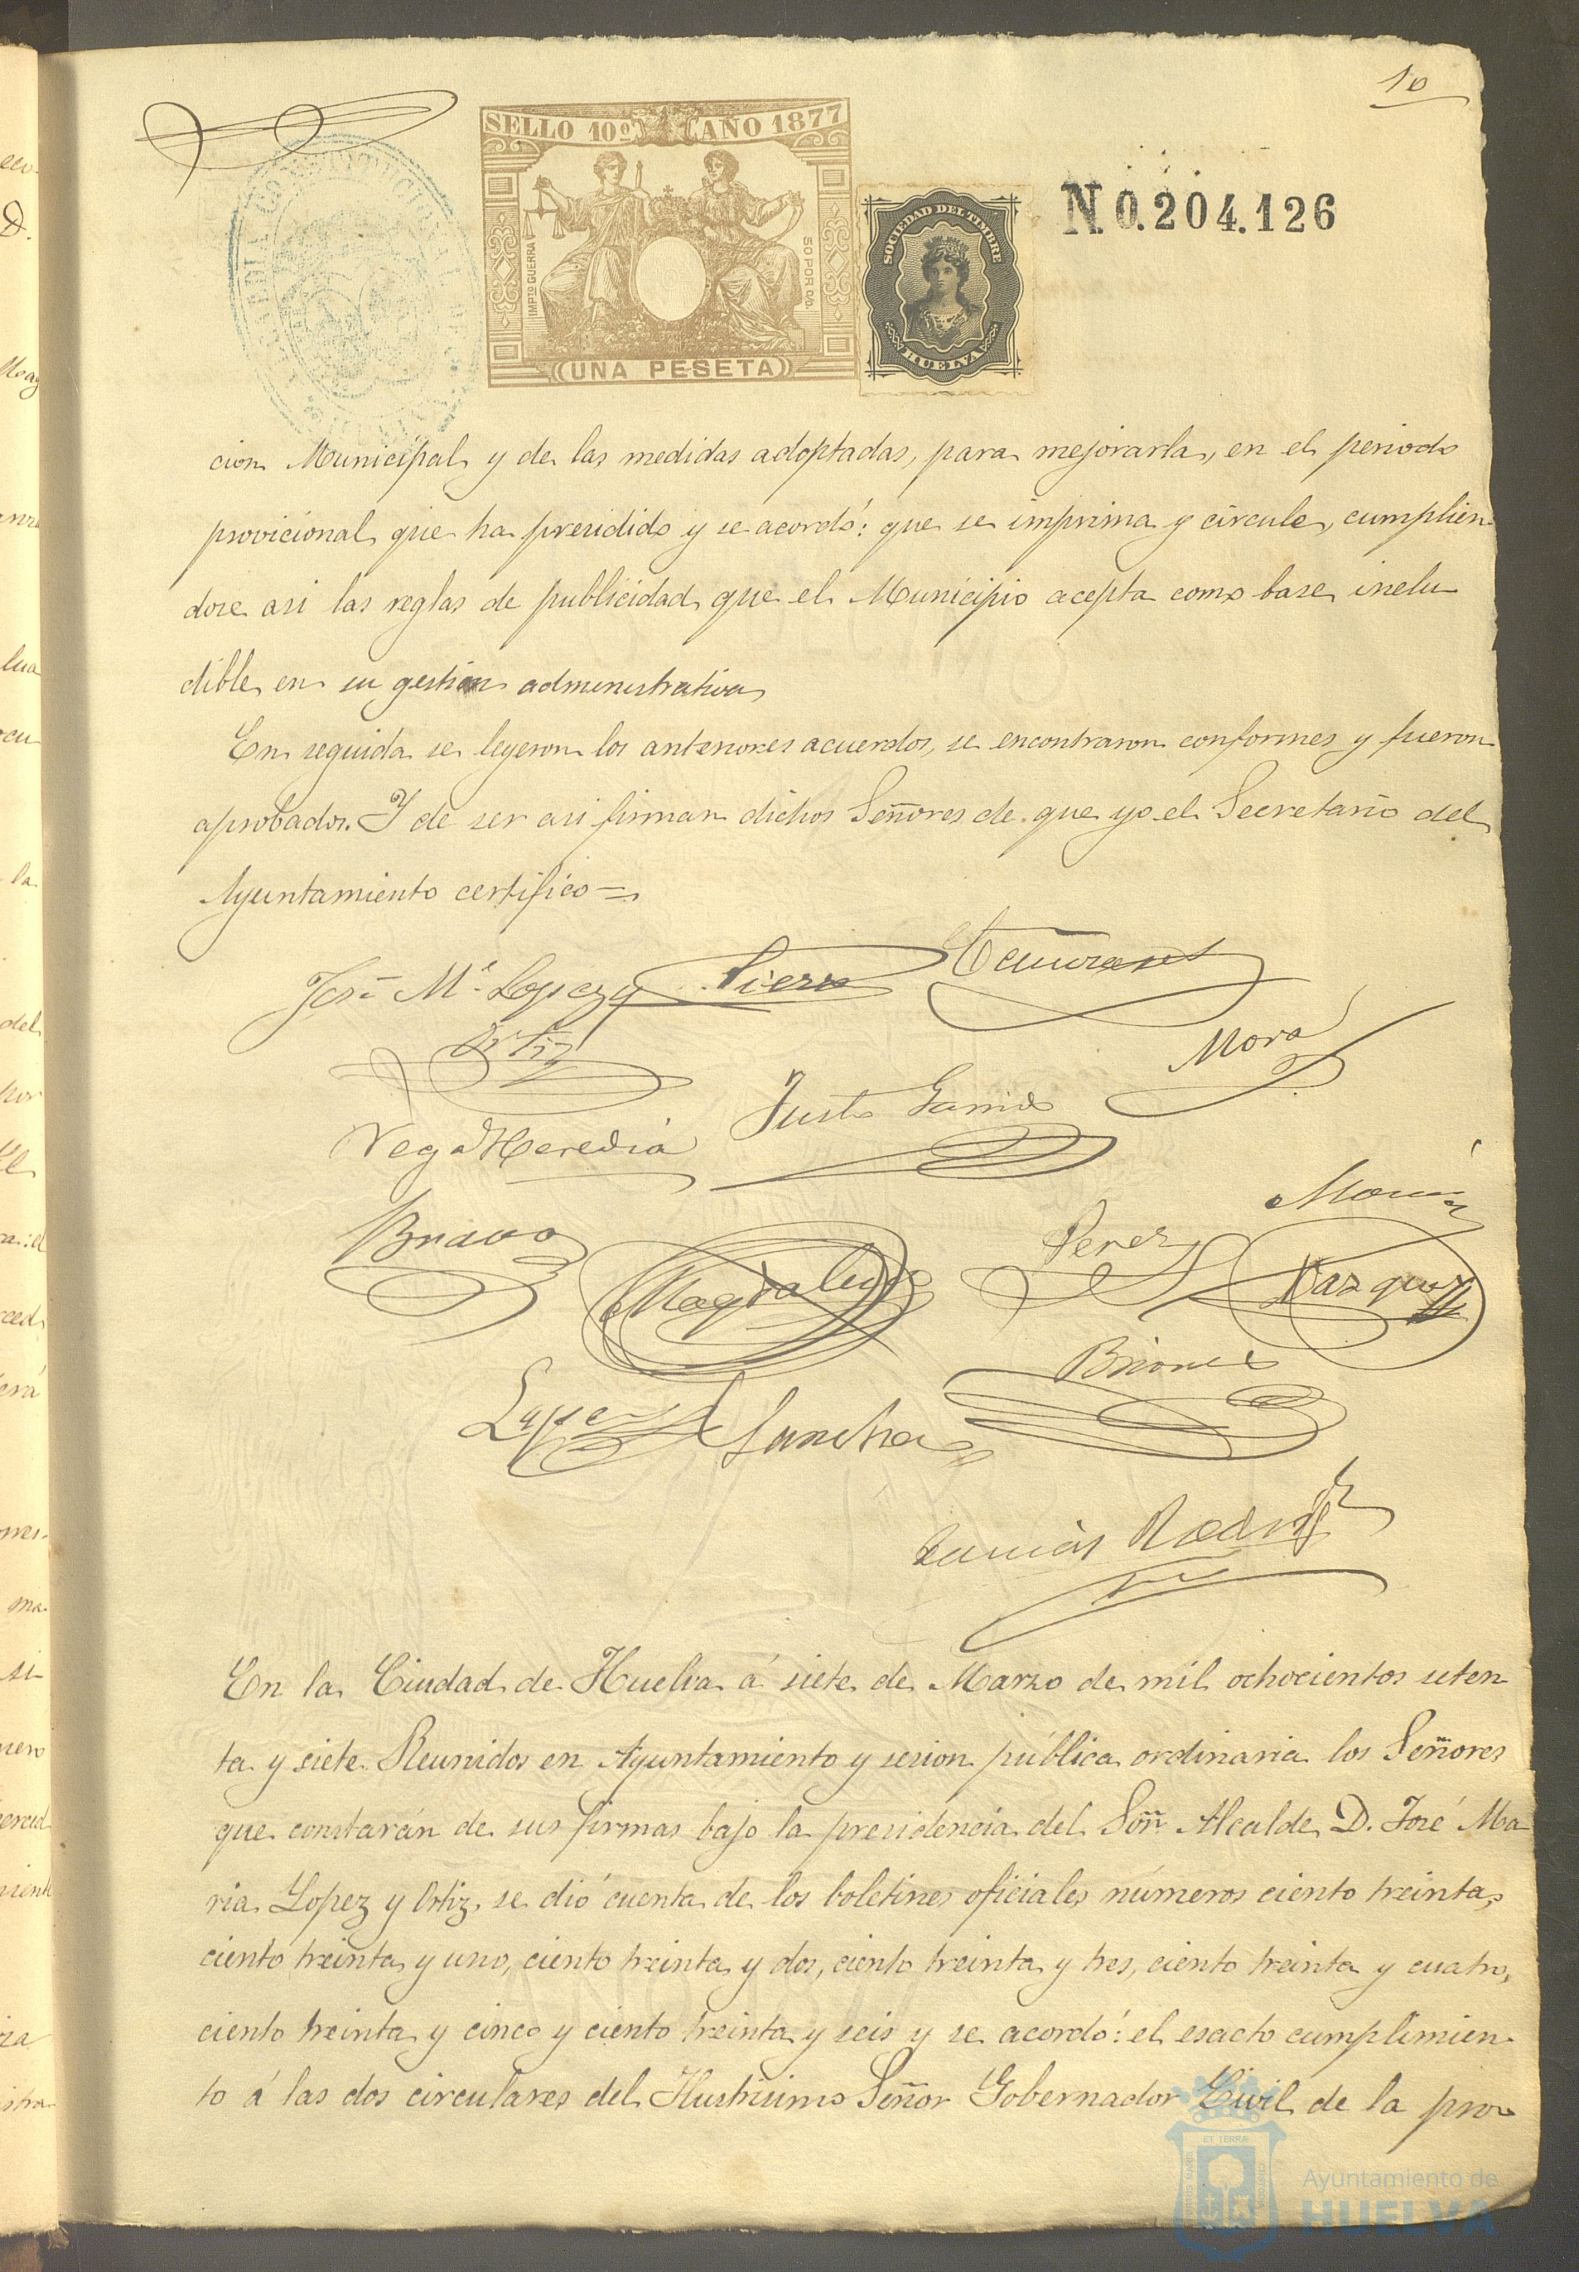 10
SELLO 10º AÑO 1877
IMPTO GUERRA
50 POR 0/0.
UNA PESETA
SOCIEDAD DEL TIMBRE
HUELVA
N. 0.204.126
cion Municipal y de las medidas adoptadas, para mejorarla, en el periodo
provicional que ha presidido y se acordó: que se imprima y circule, cumplien-
dose asi las reglas de publicidad que el Municipio acepta como base inelu-
dible en su gestion administrativa
En seguida se leyeron los anteriores acuerdos, se encontraron conformes y fueron
aprobados. Y de ser asi firman dichos Señores de que yo el Secretario del
Ayuntamiento certifico=
José Mª Lopez y
Ortiz
Mora
Vega Heredia
Justo Garrido
Bravo
Perez
Vazquez
Briones
Lopez
Sanchez
En la Ciudad de Huelva á siete de Marzo de mil ochocientos seten
ta y siete. Reunidos en Ayuntamiento y sesion pública ordinaria los Señores
que constarán de sus firmas bajo la presidencia del Soñr Alcalde D. José Ma-
ria Lopez y Ortiz, se dió cuenta de los boletines oficiales números ciento treinta,
ciento treinta y uno, ciento treinta y dos, ciento treinta y tres, ciento treinta y cuatro,
ciento treinta y cinco y ciento treinta y seis y se acordó: el esacto cumplimien-
to á las dos circulares del Ilustrisimo Señor Gobernador Civil de la pro-
Ayuntamiento de
HUELVA